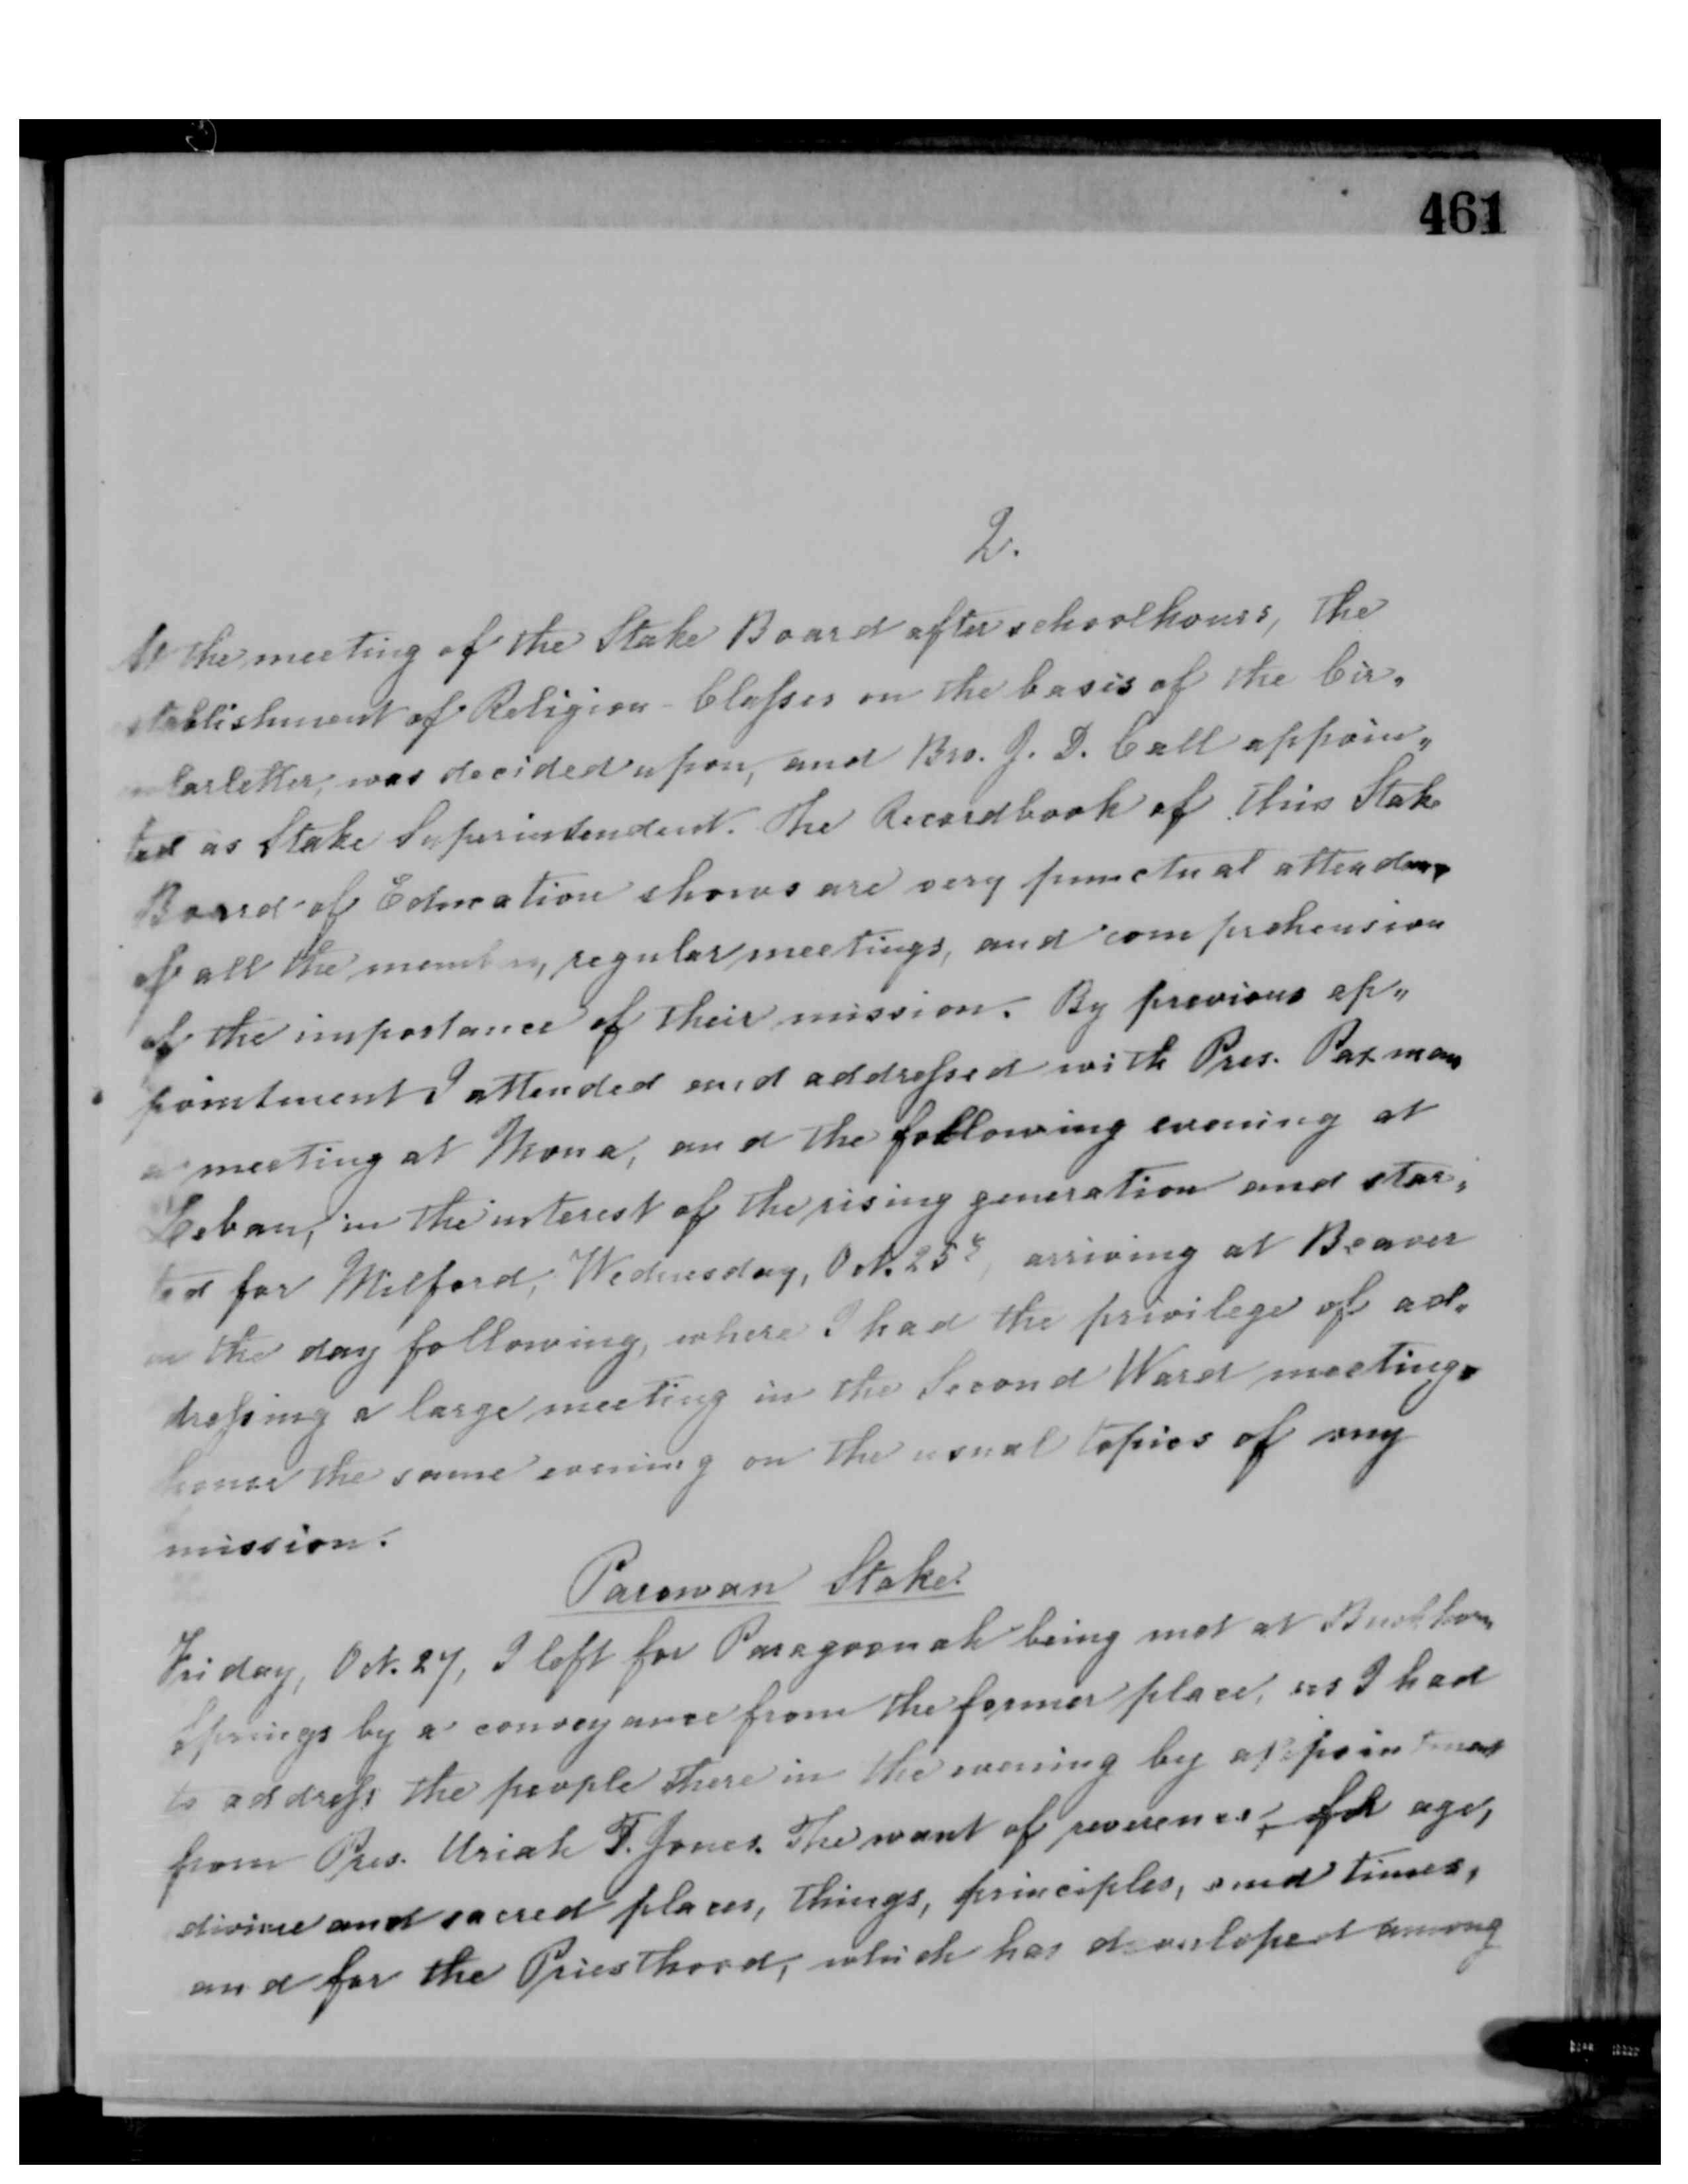 461
2.
At the meeting of the Stake Board after schoolhours, the
establishment of Religion-Classes on the basis of the Cir„
cularletter, was decided upon, and Bro. J. D. Call appoin„
ted as Stake Superintendent. The Recordbook of this Stake
Board of Education shows are very punctual attendance
of all the members, regular meetings, and comprehension
of the importance of their mission. By previous ap„
pointment I attended and addressed with Pres. Paxman
a meeting at Mona, and the following evening at
Leban, in the interest of the rising generation and star„
ted for Milford, Wednesday, Oct. 25th, arriving at Beaver
on the day following, where I had the privilege of ad„
dressing a large meeting in the Second Ward meeting„
house the same evening on the usual topics of my
mission.
Parowan Stake.
Friday, Oct. 27, I left for Paragoonah being met at Buckhorn
Springs by a conveyance from the former place, as I had
to address the people there in the evening by appointment
from Pres. Uriah T. Jones. The want of reverence for age,
divine and sacred places, things, principles, and times,
and for the Priesthood, which has developed among